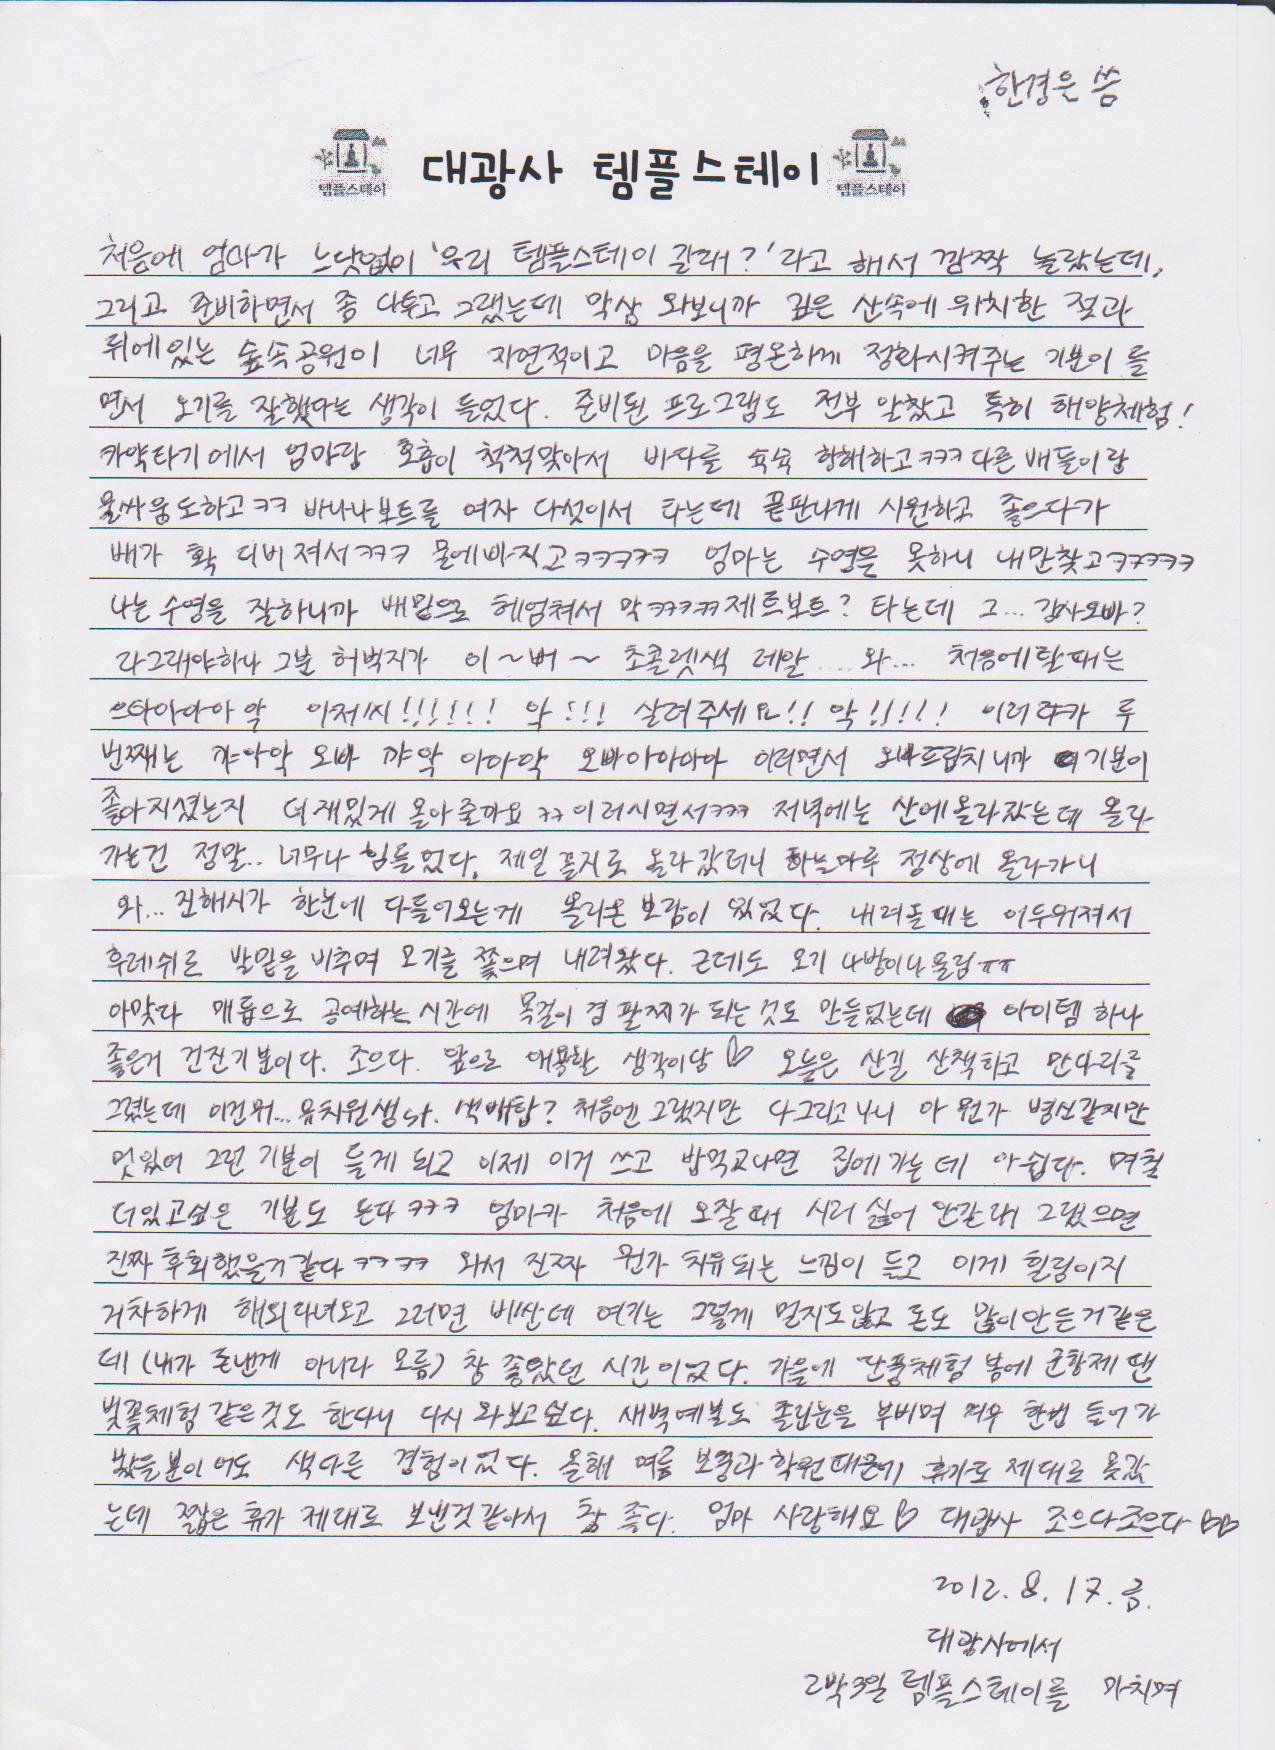 한경은 씀
템플스테이 대광사 템플스테이 템플스테이
처음에 엄마가 느닷없이 '우리 템플스테이 갈래?'라고 해서 깜짝 놀랐는데,
그리고 준비하면서 좀 다투고 그랬는데 막상 와보니까 깊은 산속에 위치한 절과
뒤에있는 숲속공원이 너무 자연적이고 마음을 평온하게 정화시켜주는 기분이 들
면서 오기를 잘했다는 생각이 들었다. 준비된 프로그램도 전부 알찼고 특히 해양체험!
카약타기에서 엄마랑 호흡이 척척맞아서 바다를 슉슉 항해하고ㅋㅋㅋ다른배들이랑
물싸움도하고ㅋㅋ 바나나보트를 여자 다섯이서 타는데 끝판나게 시원하고 좋으다가
배가 확 디비져서ㅋㅋㅋ 물에빠지고ㅋㅋㅋㅋㅋ 엄마는 수영을 못하니 내만찾고ㅋㅋㅋㅋㅋ
나는수영을 잘하니까 배밑으로 헤엄쳐서 막ㅋㅋㅋㅋ제트보트? 타는데 그... 강사오빠?
라그래야하나 그분 허벅지가 이~버~ 초콜렛색 레알.... 와... 처음에탈때는
으아아아아악 아저씨!!!!!! 악!!! 살려주세요!! 악!!!!! 이러다가 두
번째는 꺄악악 오빠 꺄악 아아악 오빠아아아아 이러면서 오빠드립치니까 기분이
좋아지셨는지 더재밌게 몰아줄까요ㅋㅋ이러시면서ㅋㅋㅋ 저녁에는 산에올라갔는데 올라
가는건 정말.. 너무나 힘들었다. 제일 끝지로 올라갔더니 하늘마루 정상에 올라가니
와... 진해시가 한눈에 다들어오는게 올라온 보람이 있었다. 내려올때는 어두워져서
후레쉬로 발밑을 비추며 모기를 쫓으며 내려왔다. 근데도 모기 나방이나물림ㅠㅠ
아맞다 매듭으로 공예하는시간에 목걸이 겸 팔찌가 되는것도 만들었는데 아이템 하나
좋은거 건진기분이다. 조으다. 앞으로 애용할 생각이당♡ 오늘은 산길 산책하고 만다라를
그렸는데 이건뭐... 유치원생나. 색배합? 처음엔그랬지만 다그리고나니 아 뭔가 병신같지만
멋있어 그런 기분이 들게 되고 이제 이거 쓰고 밥먹고나면 집에가는데 아쉽다. 며칠
더있고싶은 기분도 든다ㅋㅋㅋ 엄마가 처음에 오잘때 시러 싫어 안갈래 그랬으면
진짜후회했을거같다ㅋㅋㅋㅋ 와서 진짜 뭔가 치유되는 느낌이 들고 이게 힐링이지
거창하게 해외다녀오고 그러면 비싼데 여기는 그렇게 멀지도않고 돈도 많이안든거같은
데(내가 돈낸게 아니라 모름) 참 좋았던 시간이었다. 가을에 단풍체험 봄에 군항제 땐
벚꽃체험같은것도 한다니 다시 와보고싶다. 새벽예불도 졸린눈을 부비며 겨우 한번 들어가
봤을뿐이어도 색다른 경험이었다. 올해 여름 보충과학원때문에 휴가도 제대로 못갔
는데 짧은휴가 제대로 보낸것같아서 참 좋다. 엄마 사랑해요♡ 대광사 조으다조으다♡♡
2012. 8. 17. 금.
대광사에서
2박3일 템플스테이를 마치며